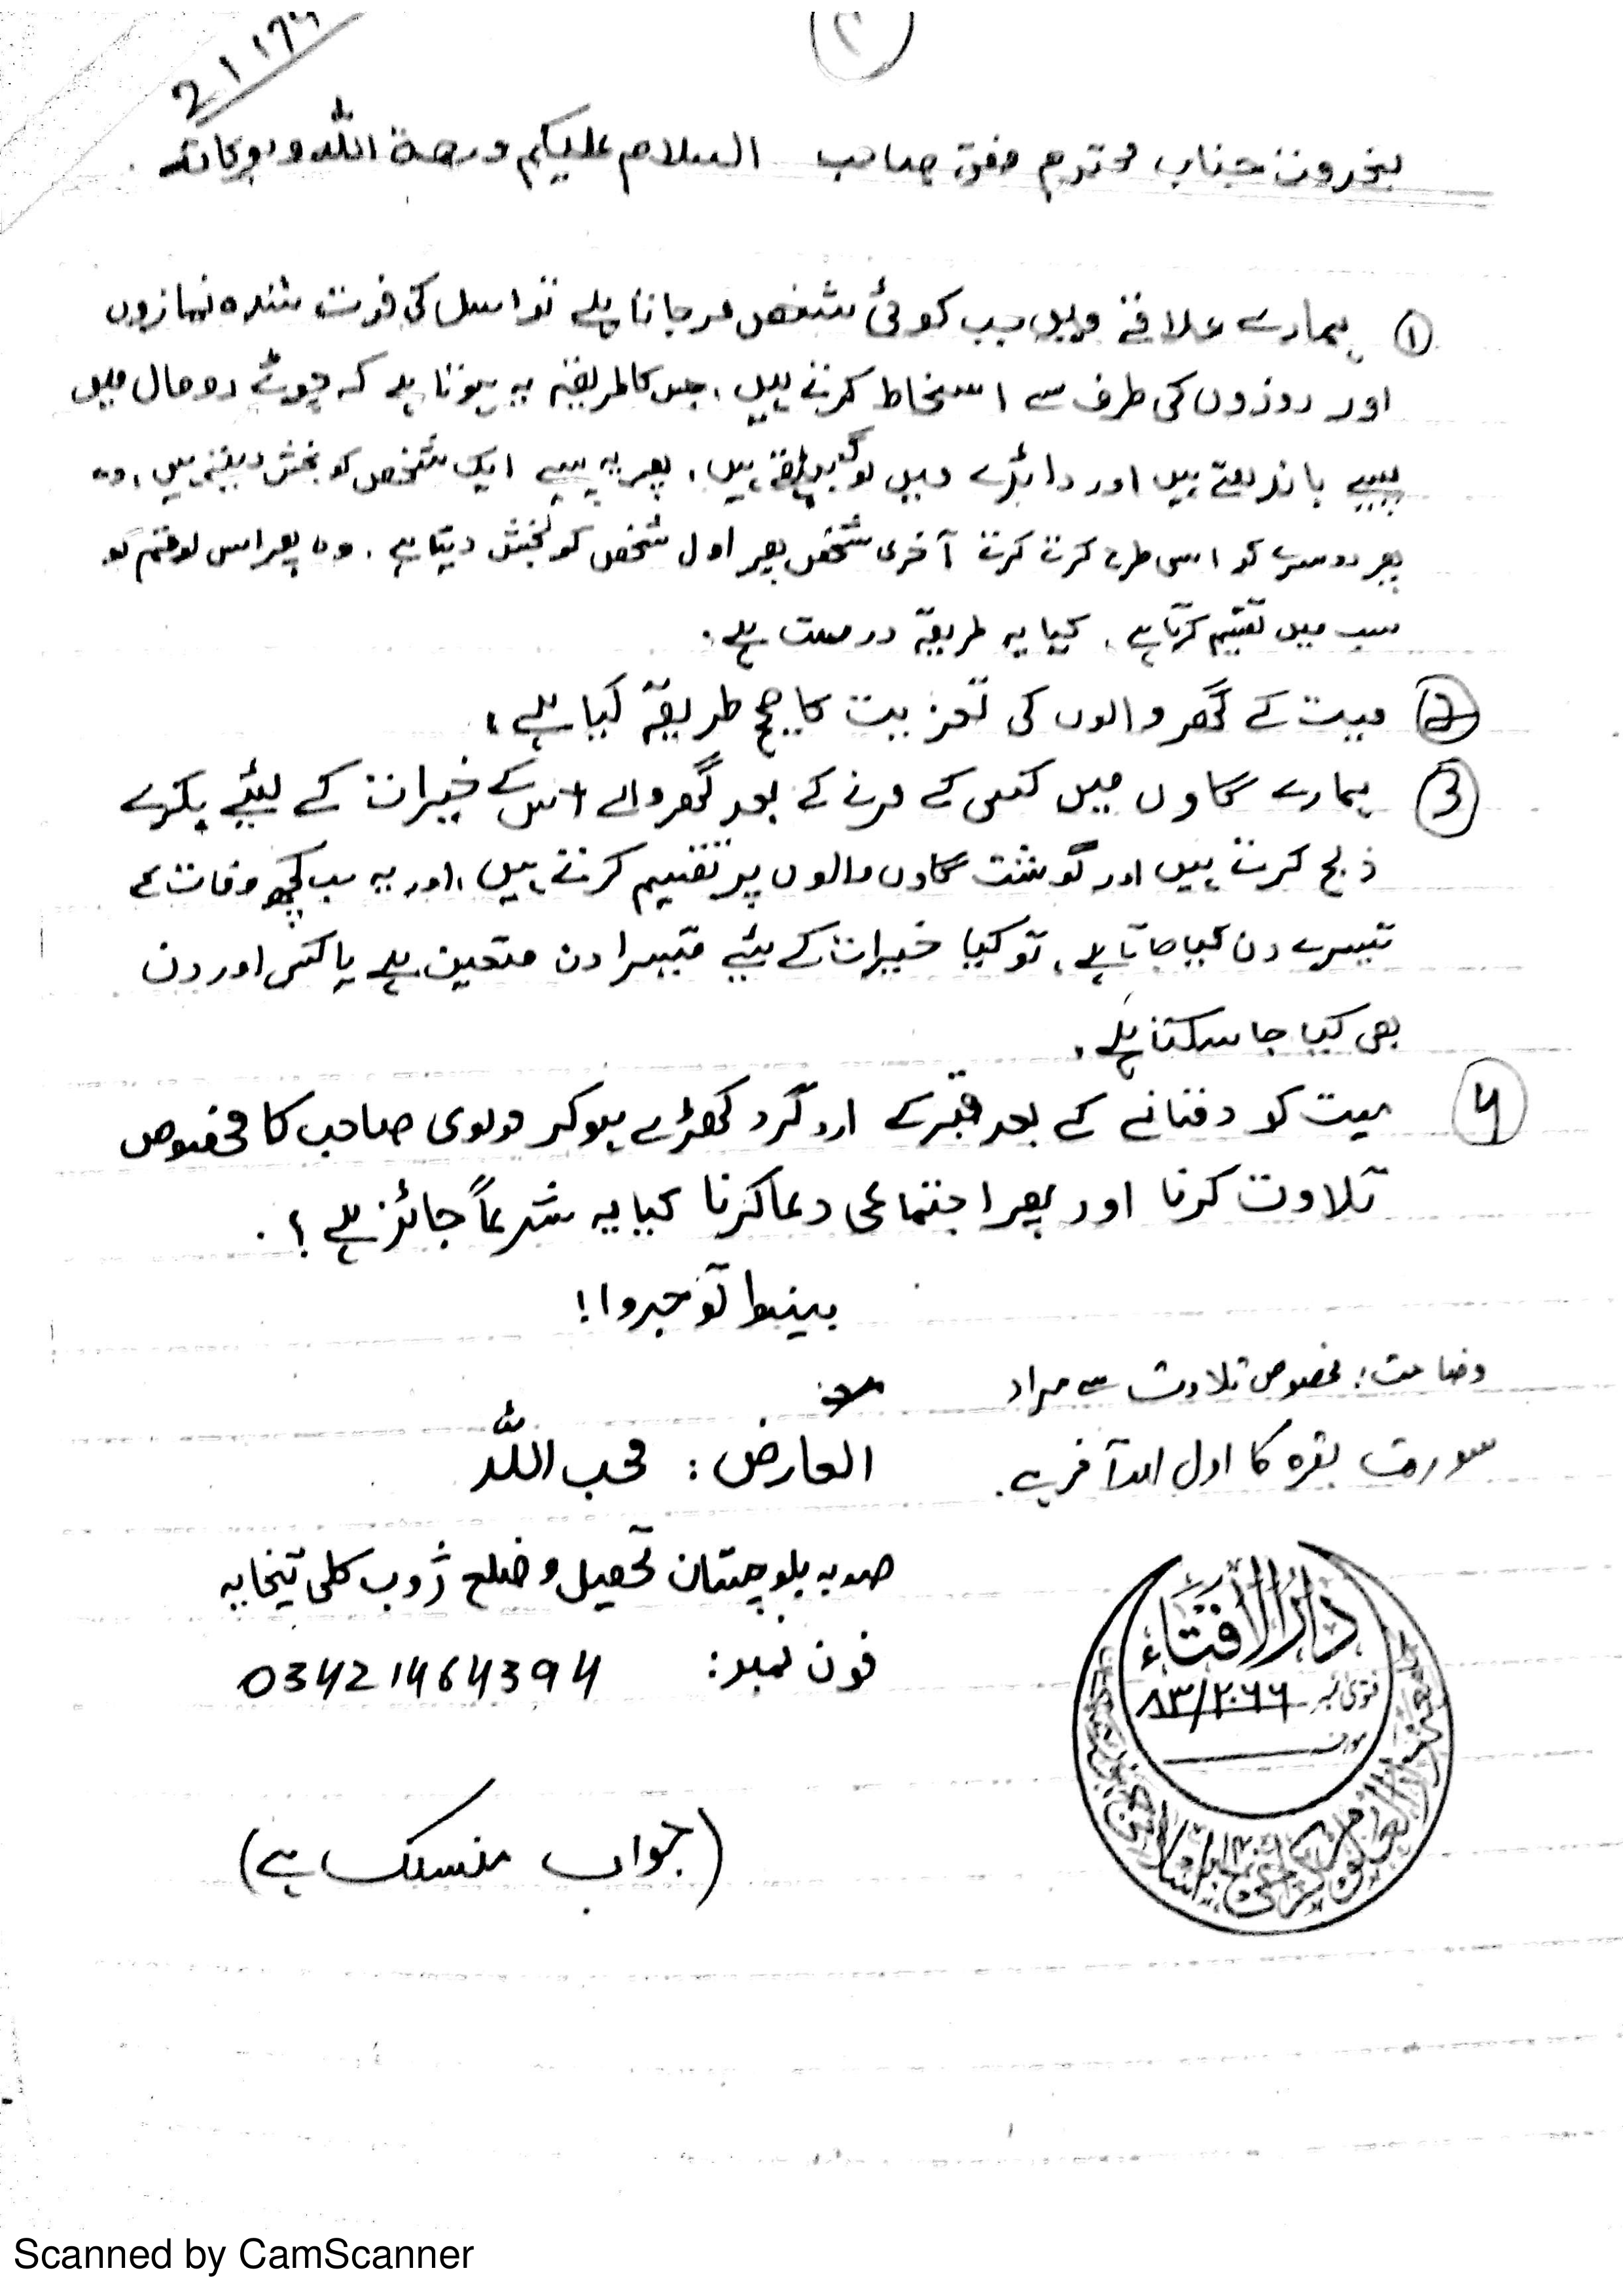 21174
بخدمت جناب محترم مفتی صاحب السلام علیکم ورحمۃ اللہ وبرکاتہ
① ہمارے علاقے میں جب کوئی شخص مرجاتا ہے تو اس کی فوت شدہ نمازوں
اور روزوں کی طرف سے اسقاط کرتے ہیں، جس کا طریقہ یہ ہوتا ہے کہ چھوٹے رومال میں
پیسے باندھتے ہیں اور دائرے میں لوگ بیٹھتے ہیں، پھر یہ پیسے ایک شخص کو بخش دیتے ہیں، وہ
پھر دوسرے کو اسی طرح کرتے کرتے آخری شخص پھر اول شخص کو بخش دیتا ہے، وہ پھر اس رقم کو
سب میں تقسیم کرتا ہے، کیا یہ طریقہ درست ہے۔
② میت کے گھر والوں کی تعزیت کا صحیح طریقہ کیا ہے،
③ ہمارے گاوں میں کسی کے مرنے کے بعد گھر والے اس کے خیرات کے لیئے بکرے
ذبح کرتے ہیں اور گوشت گاوں والوں پر تقسیم کرتے ہیں، اور یہ سب کچھ وفات کے
تیسرے دن کیا جاتا ہے، تو کیا خیرات کے لیئے تیسرا دن متعین ہے یا کسی اور دن
بھی کیا جا سکتا ہے،
④ میت کو دفنانے کے بعد قبر کے ارد گرد کھڑے ہوکر مولوی صاحب کا مخصوص
تلاوت کرنا اور پھر اجتماعی دعا کرنا کیا یہ شرعاً جائز ہے؟
بینوا توجروا!
وضاحت: مخصوص تلاوت سے مراد
سورت بقرہ کا اول اور آخر ہے۔
العارض: محب اللہ
صوبہ بلوچستان تحصیل و ضلع ژوب کلی
فون نمبر: 03421464394
دار الافتاء
فتویٰ نمبر ۸۳/۲۰۶۶
مورخہ
(جواب منسلک ہے)
Scanned by CamScanner